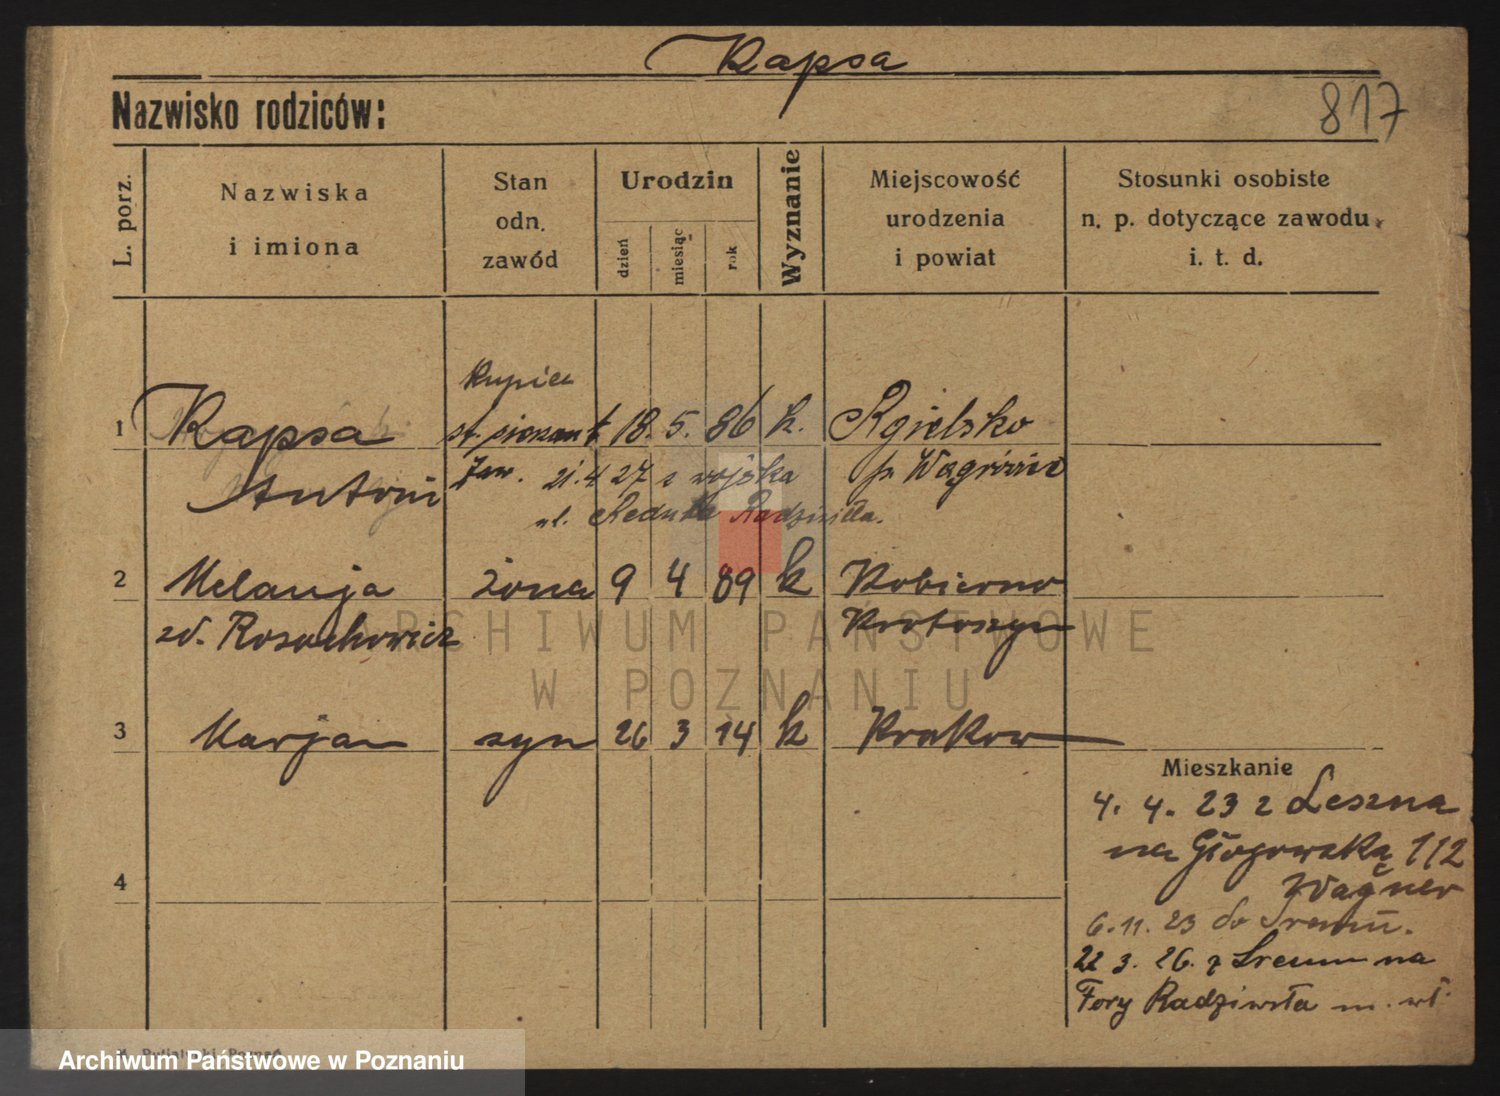 Rapsa
Nazwisko rodziców:
817
L. porz.
Nazwiska
i imiona
Stan
odn.
zawód
Urodzin
dzień
miesiąc
rok
Wyznanie
Miejscowość
urodzenia
i powiat
Stosunki osobiste
n. p. dotyczące zawodu
i. t. d.
Kupiec
1 Rapsa st. sierżant 18. 5. 86 k. Rgielsko
Antoni Zaw. 21. 4 27 z wojska
ul. Reduta Radziwiłła.
2 Melanja żona 9 4 89 k Kobierno
zd. Rosochowicz Krotoszyn
3 Marjan syn 26 3 14 k Krakow
Mieszkanie
4. 4. 23 z Leszna
na Głogowską 112
4
Wagner
6. 11. 23 do Sremu.
22 3. 26. z Sremu na
Fory Radziwiłła m. wł.
ARCHIWUM PAŃSTWOWE
W POZNANIU
Archiwum Państwowe w Poznaniu